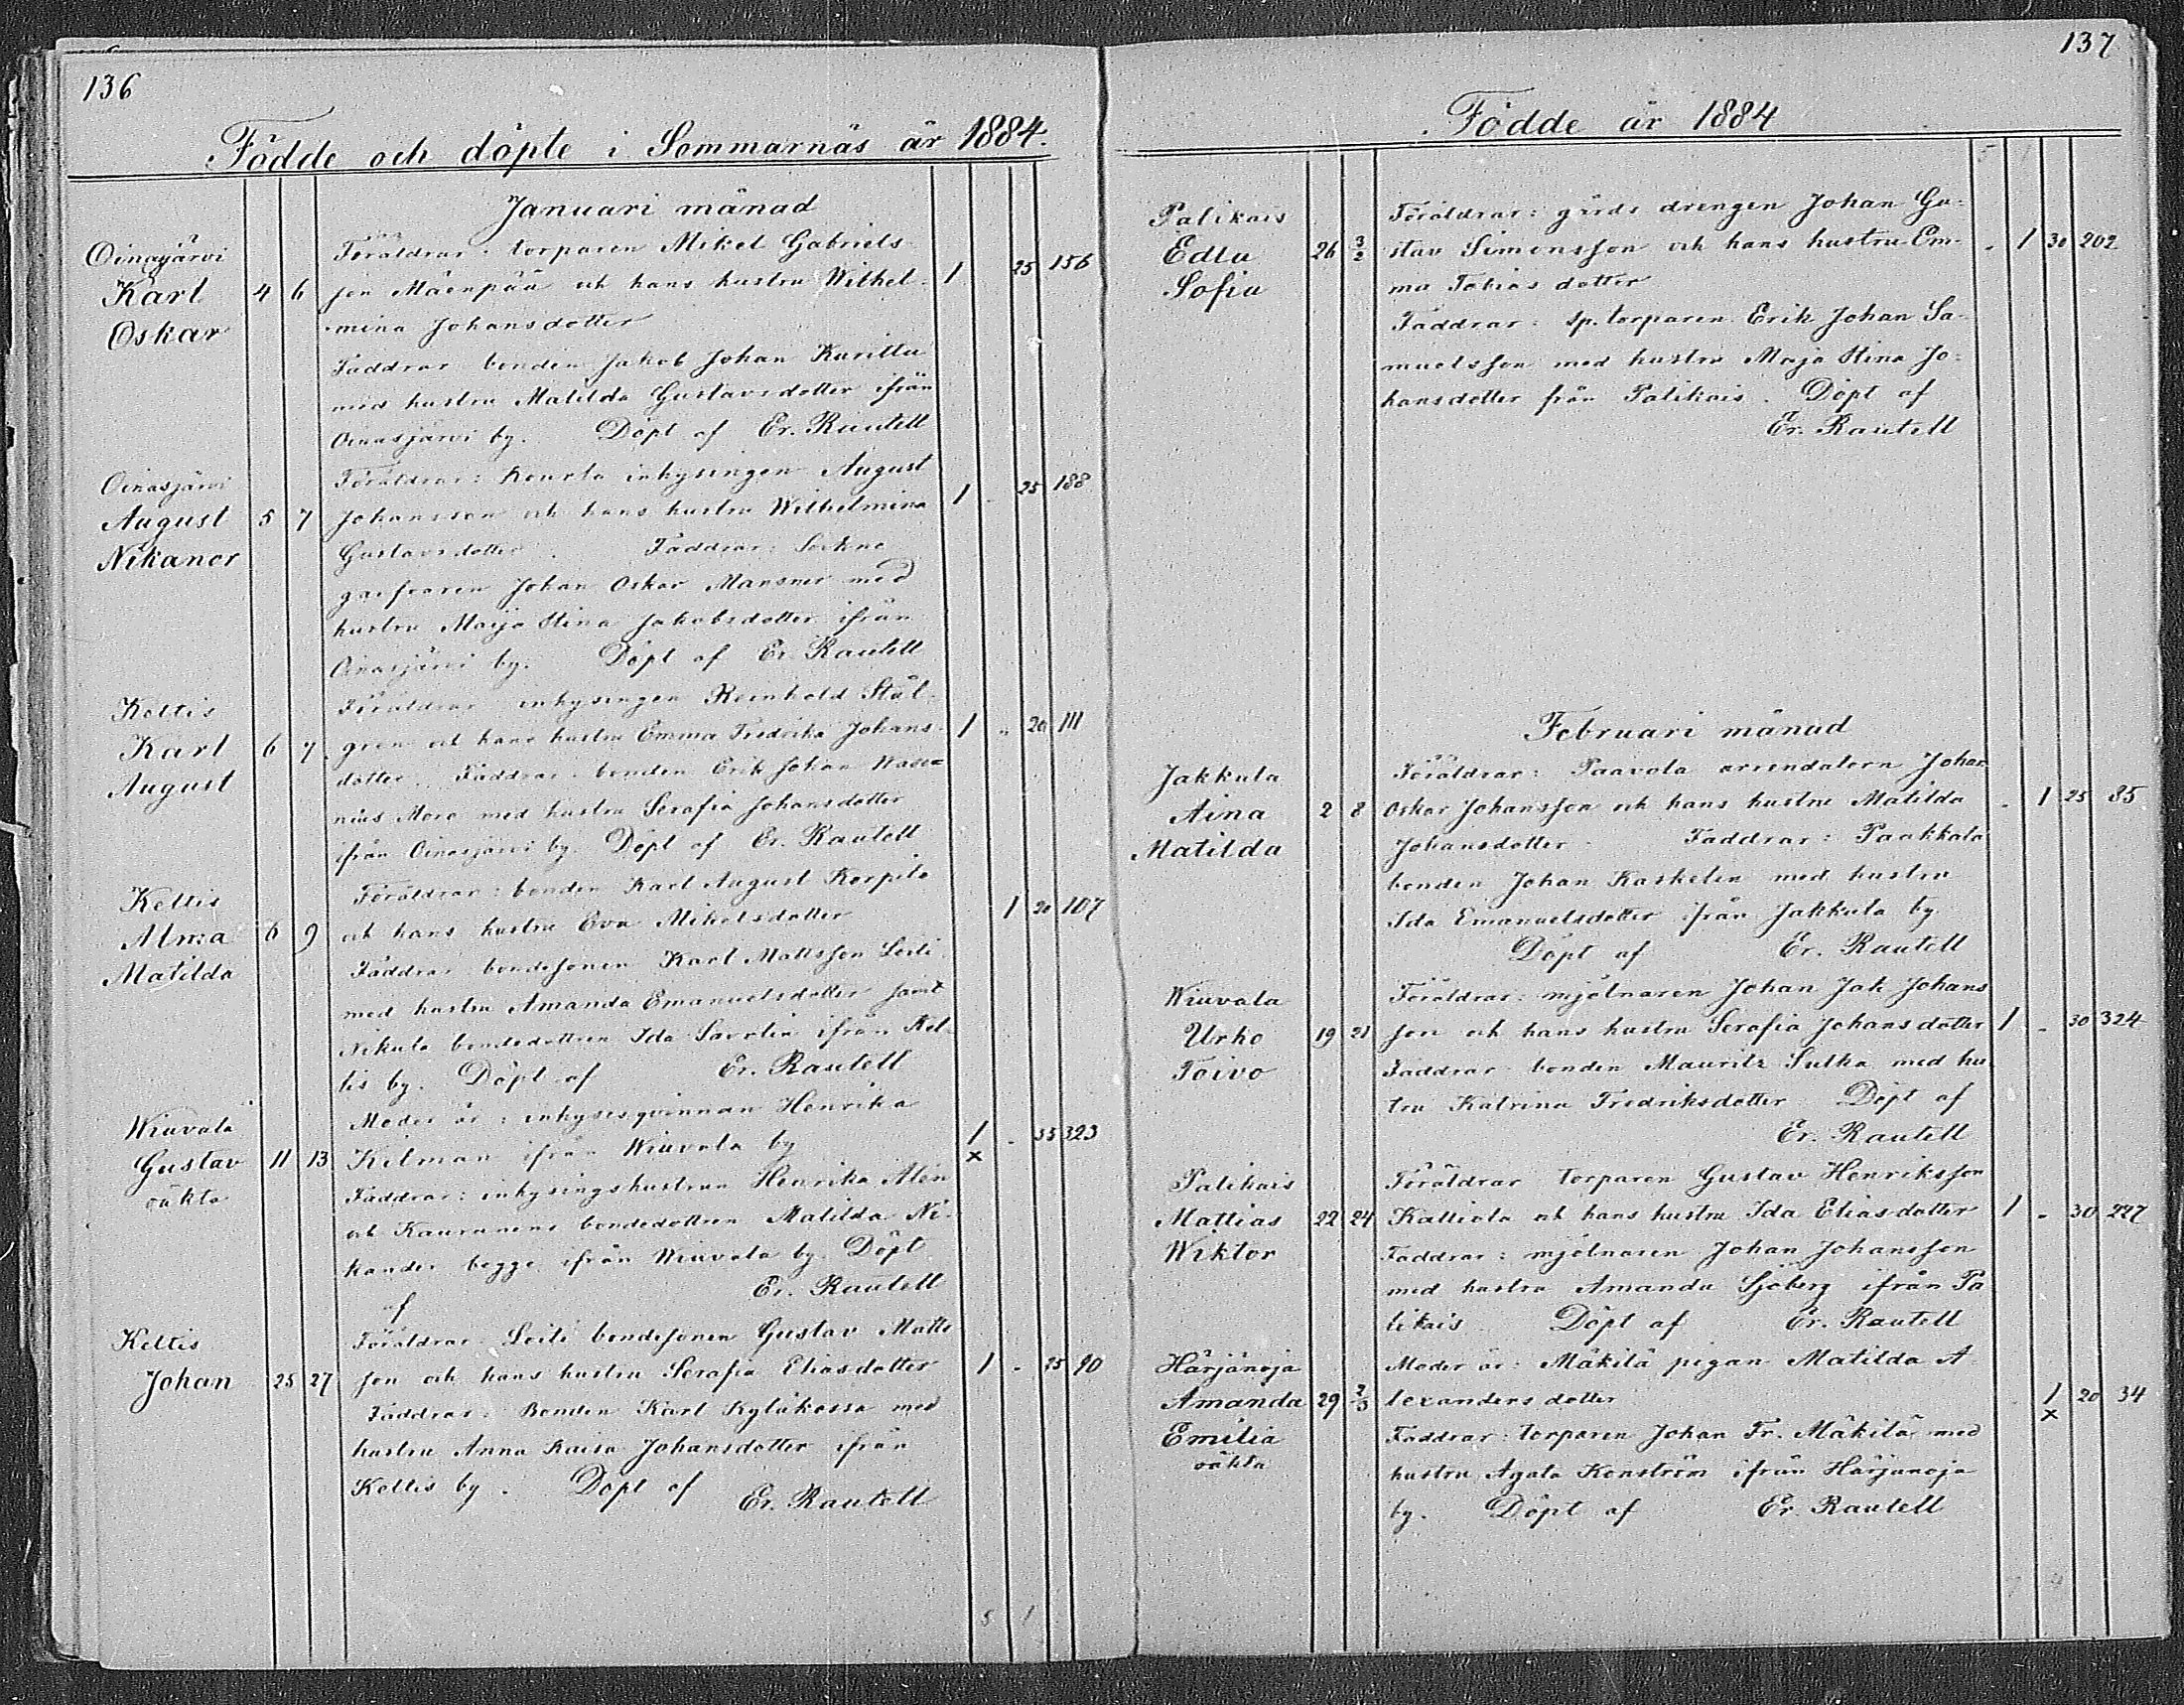 136
Födde och döpte i Sommarnäs år 1884.
Januari månad
Oinasjärvi
Karl
Oskar
4 6
Föräldrar: torparen Mikel Gabriels-
son Mäenpää och hans hustru Wilhel-
mina Johansdotter
1 25 156
Faddrar bonden Jakob Johan Kurittu
med hustru Matilda Gustavsdotter ifrån
Oinasjärvi by. Döpt af Er. Rautell
Oinasjärvi
August
Nikanor
5 7
Föräldrar: Kourla inhysingen August
Johansson och hans hustru Wilhelmina
Gustavsdotter. Faddrar: Sockne
garfvaren Johan Oskar Mansner med
hustru Maija Stina Jakobsdotter ifrån
Oinasjärvi by. Döpt af Er. Rautell
1 - 25 188
Keltis
Karl
August
6 7
Föräldrar inhysingen Reinhold Stål-
gren och hans hustru Emma Fredrika Johans-
dotter. Faddrar: bonden Erik Johan Wase=
nius Moro med hustru Serafia Johansdotter
ifrån Oinasjärvi by. Döpt af Er. Rautell
1 " 20 111
Keltis
Alma
Matilda
6 9
Föräldrar: bonden Karl August Korpilo
och hans hustru Eva Mikelsdotter
1 20 107
Faddrar bondesonen Karl Mattsson Seili
med hustru Amanda Emanuelsdotter samt
Nikula bondedottren Ida Savolin ifrån Kel-
tis by. Döpt af Er. Rautell
Wiuvala
Gustav
oäkta
11 13
Moder är: inhysesqvinnan Henrika
Kilman ifrån Wiuvala by
1 - 35 323
x
Faddrar: inhysingshustrun Henrika Alén
och Kauranens bondedottren Matilda Ni-
kander begge ifrån Wiuvala by. Döpt
af Er. Rautell
Keltis
Johan
25 27
Föräldrar Seili bondesonen Gustav Matts
son och hans hustru Serafia Eliasdotter
1 - 25 90
Faddrar: Bonden Karl Kyläkossa med
hustru Anna Kaisa Johansdotter ifrån
Keltis by. Döpt af Er. Rautell
5 1
137
Födde år 1884
5 1
Palikais
Edla
Sofia
26 3/2
Föräldrar: gårds drengen Johan Gu=
stav Simonsson och hans hustru Em-
ma Tobias dotter
- 1 30 202
Faddrar: sp. torparen Erik Johan Sa-
muelsson med hustru Maja Stina Jo=
hansdotter från Palikais. Döpt af
Er. Rautell
Februari månad
Jakkula
Aina
Matilda
2 8
Föräldrar: Paavola arrendatorn Johan
Oskar Johansson och hans hustru Matilda
Johansdotter. Faddrar: Paakkala
bonden Johan Kaskelin med hustru
Ida Emanuelsdotter från Jakkula by
Döpt af Er. Rautell
- 1 25 85
Wiuvala
Urho
Toivo
19 21
Föräldrar: mjölnaren Johan Jak Johans
son och hans hustru Serafia Johansdotter
1 - 30 324
Faddrar bonden Mauritz Sutka med hu
tru Katrina Fredriksdotter Döpt af
Er. Rautell
Palikais
Mattias
Wiktor
22 24
Föräldrar torparen Gustav Henriksson
Kalliola och hans hustru Ida Eliasdotter
1 - 30 227
Faddrar: mjölnaren Johan Johansson
med hustru Amanda Sjöberg ifrån Pa
likais Döpt af Er. Rautell
Härjänoja
Amanda
Emilia
oäkta
29 2/3
Moder är: Mäkilä pigan Matilda A
lexanders dotter
1 20 34
x
Faddrar: torparen Johan Fr. Mäkilä med
hustru Agata Konström ifrån Härjänoja
by. Döpt af Er. Rautell